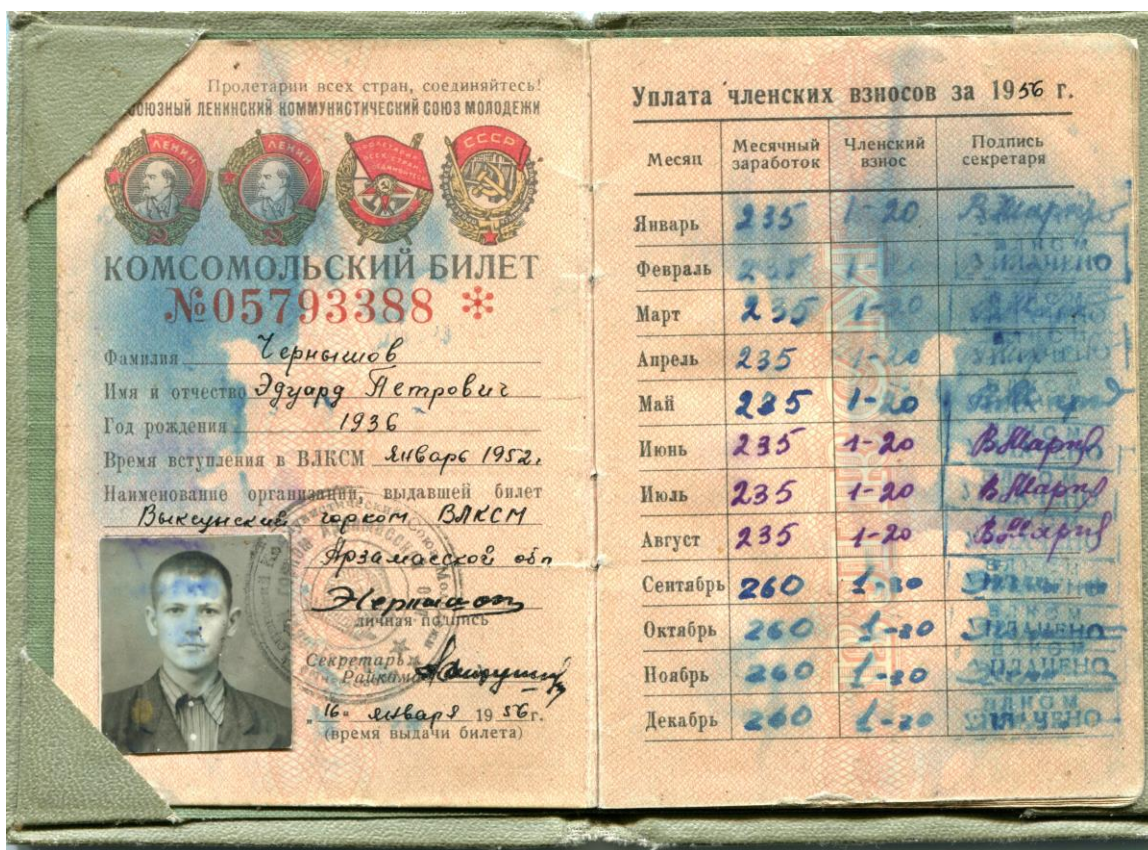 Пролетарии всех стран, соединяйтесь!
СОЮЗНЫЙ ЛЕНИНСКИЙ КОММУНИСТИЧЕСКИЙ СОЮЗ МОЛОДЕЖИ
ЛЕНИН ЛЕНИН ПРОЛЕТАРИИ ВСЕХ СТРАН СОЕДИНЯЙТЕСЬ СССР
КОМСОМОЛЬСКИЙ БИЛЕТ
№05793388
Фамилия Чернышов
Имя и отчество Эдуард Петрович
Год рождения 1936
Время вступления в ВЛКСМ Январь 1952.
Наименование организации, выдавшей билет
Выксунский горком ВЛКСМ
Арзамасской обл
личная подпись
Секретарь
Райкома
"16" января 1956г.
(время выдачи билета)
Уплата членских взносов за 1956 г.
Месяц Месячный заработок Членский взнос Подпись секретаря
Январь 235 1-20
Февраль 235 1-20 УПЛАЧЕНО
Март 235 1-20
Апрель 235 1-20 УПЛАЧЕНО
Май 235 1-20
Июнь 235 1-20
Июль 235 1-20
Август 235 1-20
Сентябрь 260 1-20
Октябрь 260 1-20 УПЛАЧЕНО
Ноябрь 260 1-20 УПЛАЧЕНО
Декабрь 260 1-20 УПЛАЧЕНО